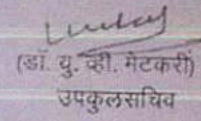 (डॉ. यु. व्ही. मेटकरी)
उपकुलसचिव